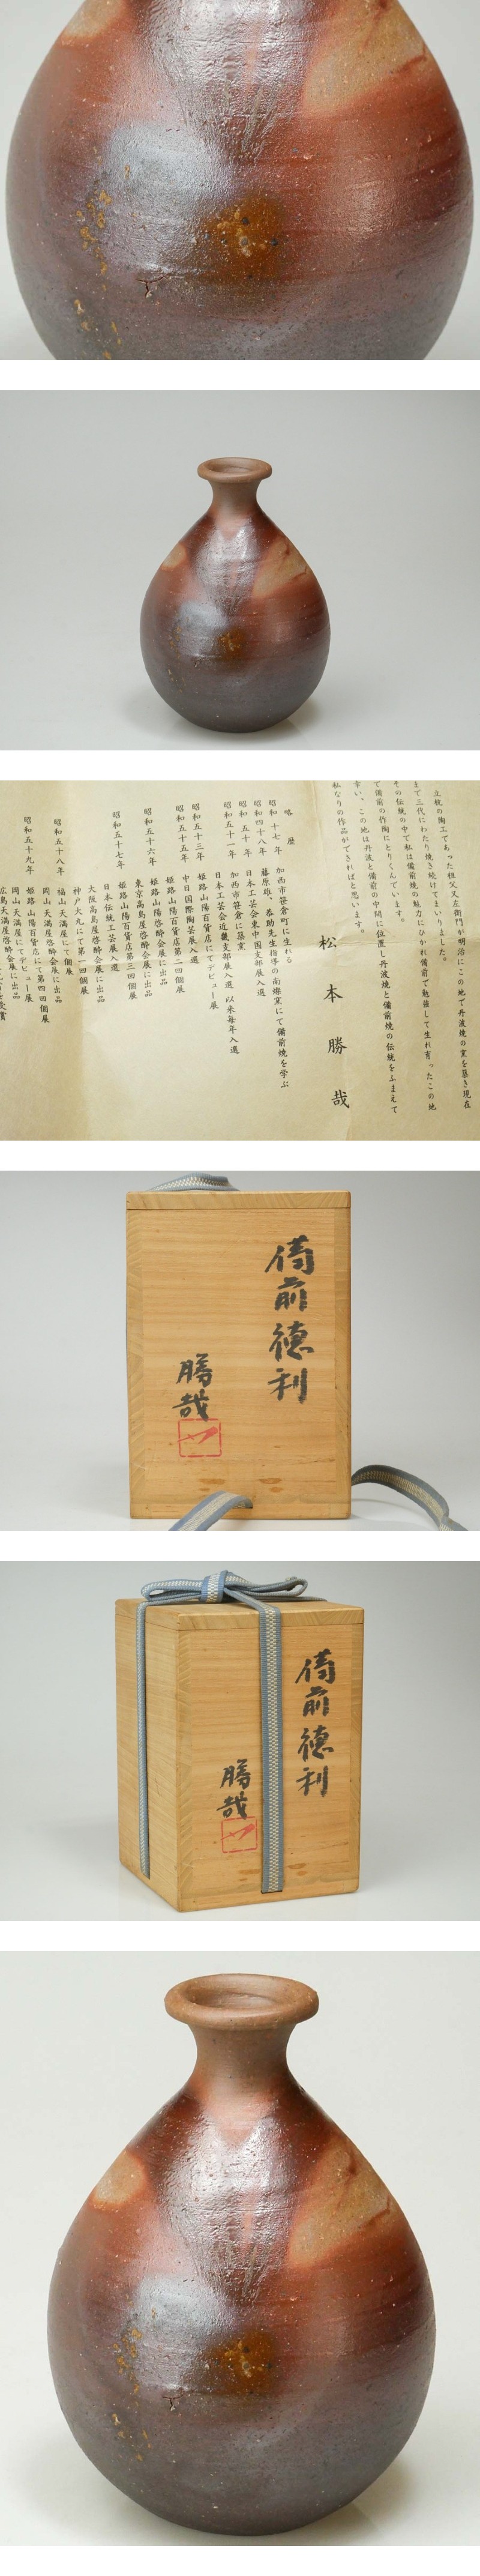 立杭の陶工であった祖父又左衛門が明治にこの地で丹波焼の窯を築き現在
まで三代にわたり焼き続けてまいりました。
その伝統の中で私は備前焼の魅力にひかれ備前で勉強して生れ育ったこの地
で備前の作陶にとりくんでいます。
幸い、この地は丹波と備前の中間に位置し丹波焼と備前焼の伝統をふまえて
私なりの作品ができればと思います。
松本勝哉
略歴
昭和十七年 加西市笹倉町に生れる
昭和四十八年 藤原雄、恭助先生指導の南燦窯にて備前焼を学ぶ
昭和五十年 日本工芸会東中国支部展入選
加西市笹倉に築窯
昭和五十一年 日本工芸会近畿支部展入選 以来毎年入選
姫路山陽百貨店にてデビュー展
昭和五十三年 中日国際陶芸展入選
昭和五十五年 姫路山陽百貨店第三回個展
姫路山陽啓酔会展に出品
昭和五十六年 東京高島屋啓酔会展に出品
姫路山陽百貨店第三四個展
昭和五十七年 日本伝統工芸展入選
大阪高島屋啓酔会展に出品
神戸大丸にて第一回個展
昭和五十八年 福山天満屋にて個展
岡山天満屋啓酔会展に出品
姫路山陽百貨店にて第四回個展
昭和五十九年 岡山天満屋にてデビュー展
広島天満屋啓酔会展に出品
備前徳利
勝哉
備前徳利
勝哉